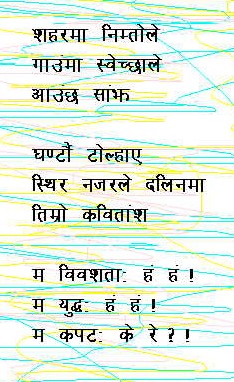 शहरमा निम्तोले
गाउंमा स्वेच्छाले
आउंछ सांझ
घण्टौं टोल्हाए
स्थिर नजरले दलिनमा
तिम्रो कवितांश
म विवशताः हं हं !
म युद्धः हं हं !
म कपटः के रे ? !